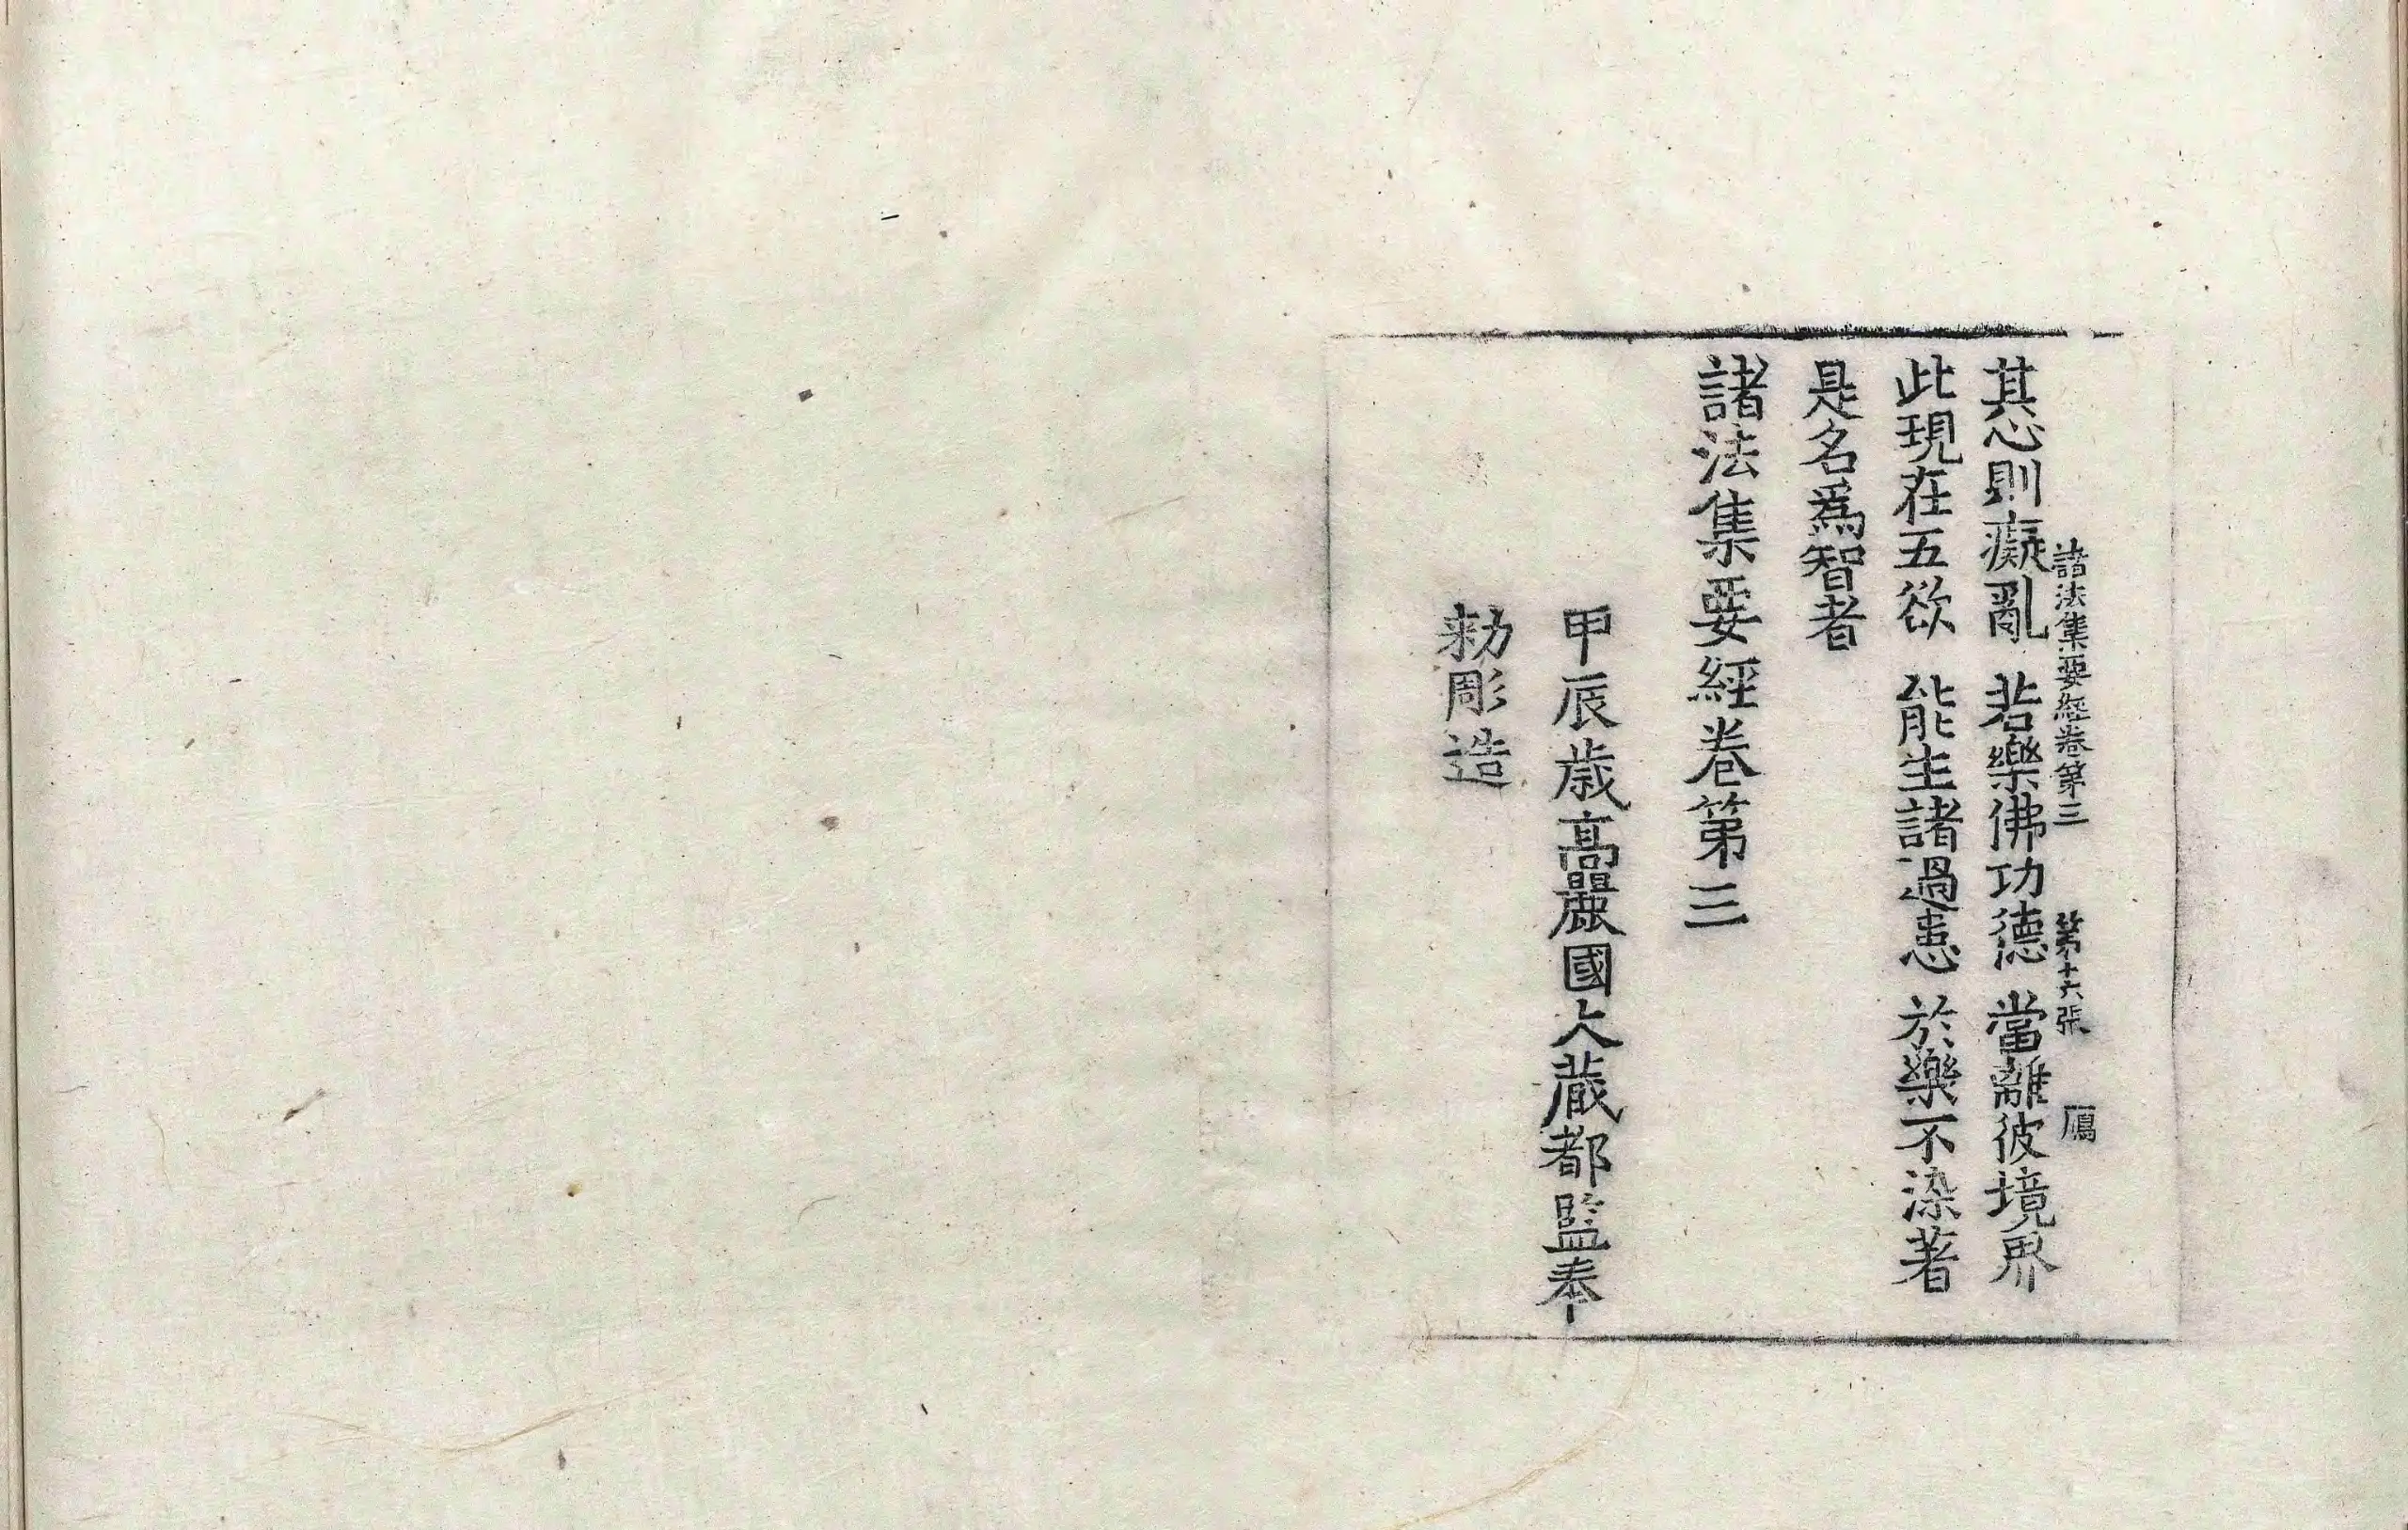 諸法集要經卷第三 第十六張 鴈
其心則癡亂 若樂佛功德 當離彼境界
此現在五欲 能生諸過患 於樂不染著
是名爲智者
諸法集要經卷第三
甲辰歲高麗國大藏都監奉
勑彫造